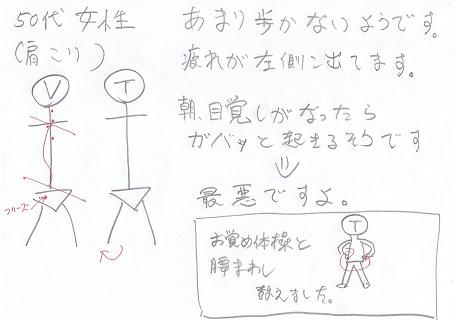 50代 女性
(肩こり)
あまり歩かないようです。
疲れが左側に出てます。
朝、目覚しがなったら
ガバッと起きるそうです
最悪ですよ。
V
T
フリーズ
T
お覚め体操と
腰まわし
教えました。